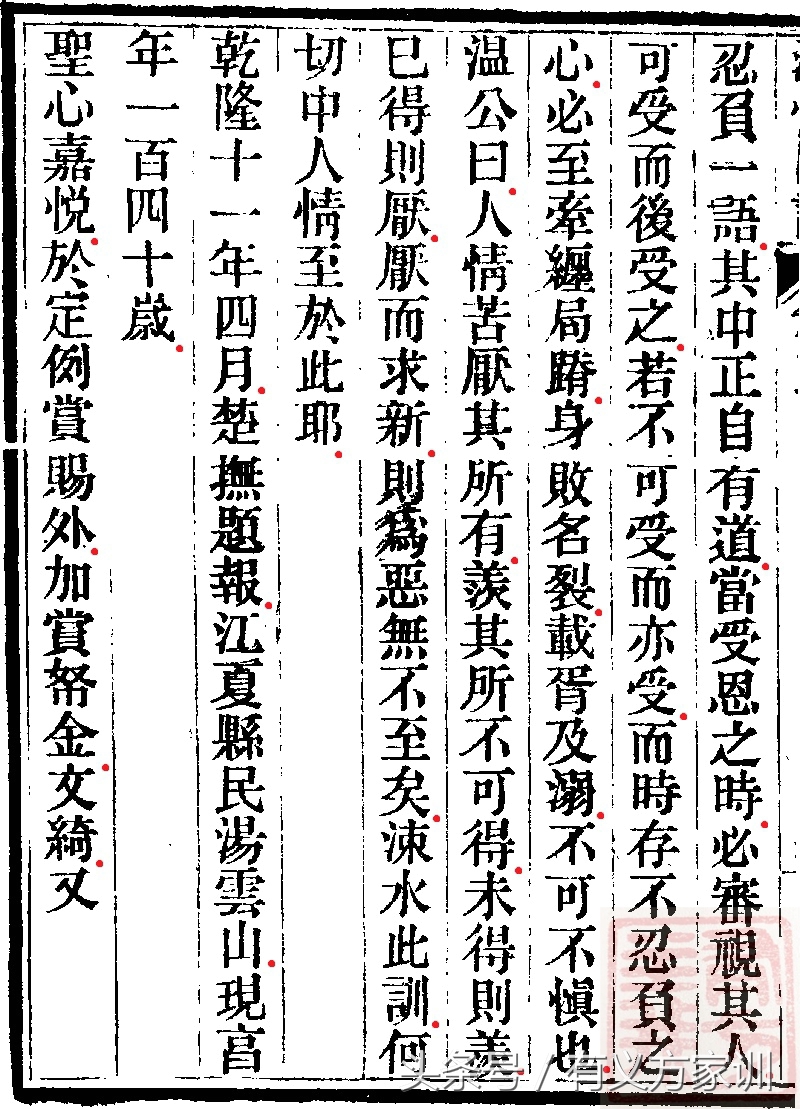 忍負一語其中正自有道當受恩之時必審視其人
可受而後受之若不可受而亦受而時存不忍負之
心必至牽纏局蹐身敗名裂載胥及溺不可不慎也
温公曰人情苦厭其所有羨其所不可得未得則羨
已得則厭厭而求新則為惡無不至矣涑水此訓何
切中人情至於此耶
乾隆十一年四月楚撫題報江夏縣民湯雲山現高
年一百四十歲
聖心嘉悅於定例賞賜外加賞帑金文綺又
头条号 / 有义方家训